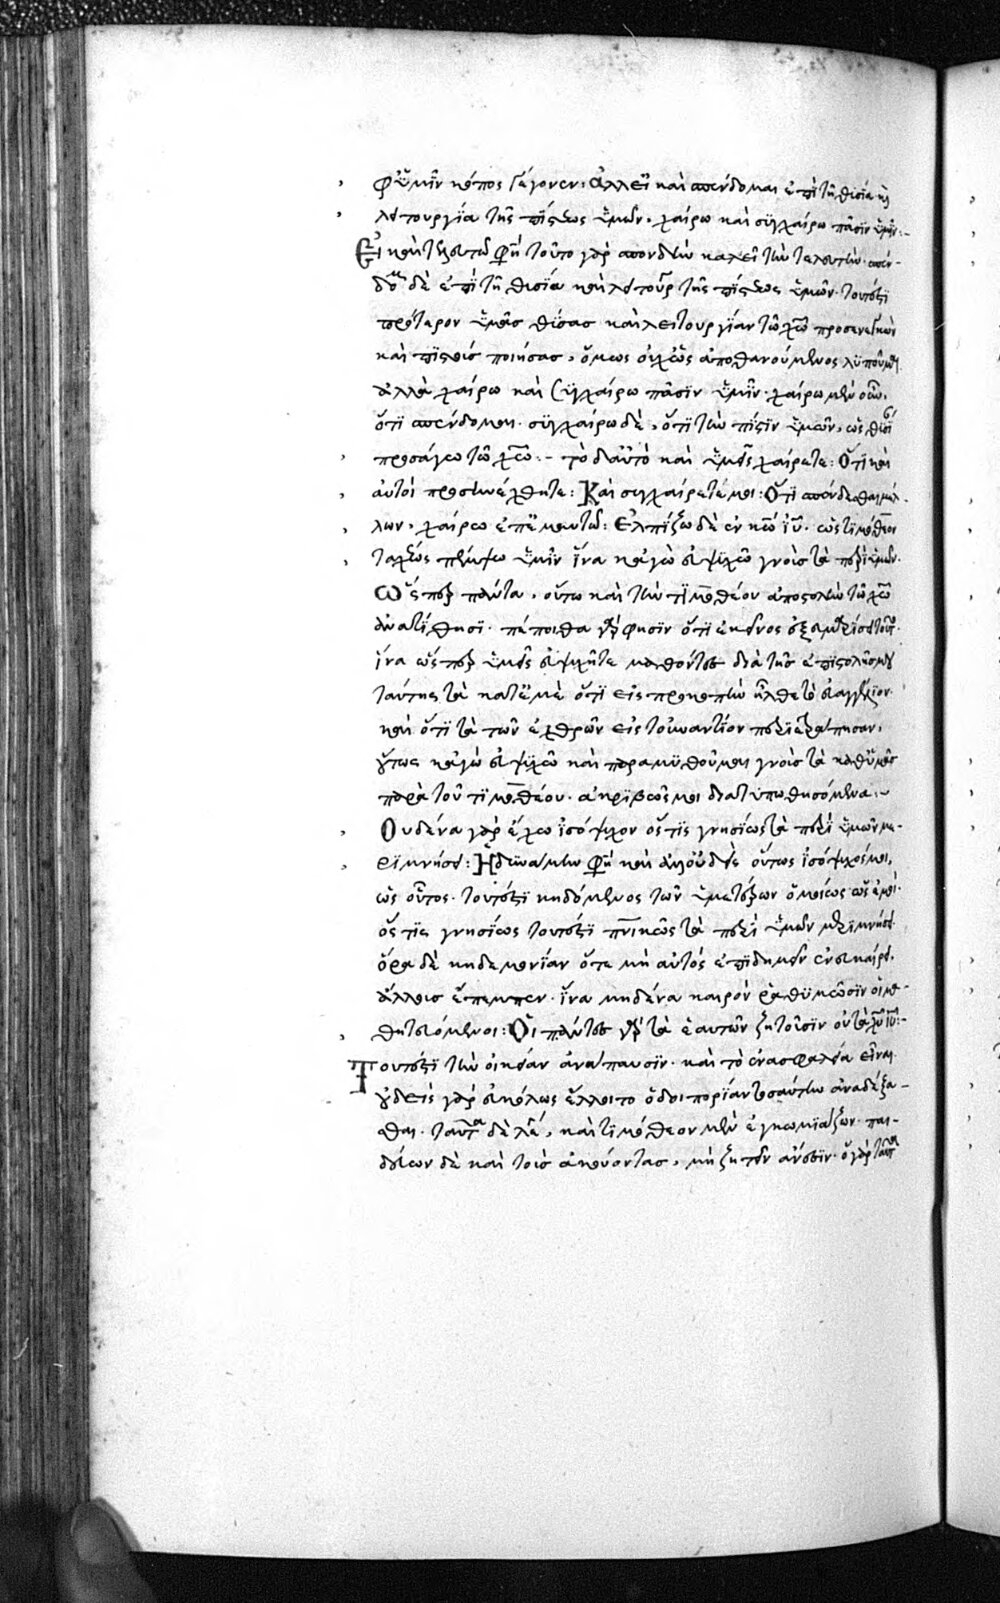 ὁ ὑμῖν κόπος γέγονεν: Ἀλλ' εἰ καὶ σπένδομαι ἐπὶ τῆ θυσία κ(αὶ)
λειτουργία τῆς πίστεως ὑμῶν. χαίρω καὶ συγχαίρω πᾶσιν ὑμῖν:-
Εἰ καὶ τελευτῶ φη(σί) τοῦτο γὰρ σπονδὴν καλεῖ τὴν τελευτὴν. σπέν-
δομ(αι) δὲ ἐπὶ τῆ θυσία καὶ λειτουρ(γία) τῆς πίστεως ὑμῶν. τουτέστι
πρότερον ὑμᾶς θύσας καὶ λειτουργίαν τῶ χ(ριστ)ῶ προσενεγκὼν
καὶ πιστοὺς ποιήσας, ὅμως οὐχ ὡς ἀποθανούμενος λυποῦμαι
ἀλλὰ χαίρω καὶ συγχαίρω πᾶσιν ὑμῖν. χαίρω μὲν οὖν,
ὅτι σπένδομαι. συγχαίρω δὲ, ὅτι τὴν πίστιν ὑμῶν, ὡς θυσί
προσάγω τῶ χ(ριστ)ῶ:- τὸ δ' αὐτὸ καὶ ὑμεῖς χαίρετε: Ὅτι καὶ
αὐτοὶ προσηνέχθητε: Καὶ συγχαίρετέ μοι: Ὅτι σπένδεσθαι μέλ-
λων, χαίρω ἐπ' ἐμαυτῶ: Ἐλπίζω δὲ ἐν κ(υρί)ω ἰ(ησο)ῦ. ὡς τιμόθεον
ταχέως πέμψω ὑμῖν ἵνα κἀγὼ εὐψυχῶ γνοὺς τὰ περὶ ὑμῶν.
Ὥσπερ πάντα, οὕτω καὶ τὴν τιμοθέου ἀποστολὴν τῶ χ(ριστ)ῶ
ἀνατίθησι. πέποιθα γάρ φησιν ὅτι ἐκεῖνος ἐξευμαρίσει τοῦτο.
ἵνα ὥσπερ ὑμεῖς εὐψυχῆτε μαθόντες διὰ τῆς ἐπιστολῆς μου
ταύτης τὰ κατ' ἐμὲ ὅτι εἰς προκοπὴν ἦλθε τὸ εὐαγγέλιον.
καὶ ὅτι τὰ τῶν ἐχθρῶν εἰς τοὐναντίον περιετράπησαν,
οὕτως κἀγὼ εὐψυχῶ καὶ παραμυθοῦμαι γνοὺς τὰ καθ' ὑμᾶς
παρὰ τοῦ τιμοθέου. ἀκριβῶς μοι διατυπωθησόμενα:-
Οὐδένα γὰρ ἔχω ἰσόψυχον ὅστις γνησίως τὰ περὶ ὑμῶν με-
ριμνήσει: Ἠδυνάμην φη(σί) καὶ ἄλλ οὐδεὶς οὕτως ἰσόψυχός μοι,
ὡς οὗτος. τουτέστι κηδόμενος τῶν ὑμετέρων ὁμοίως ὡς ἐμοί.
ὅστις γνησίως τουτέστι π(ατ)ρικῶς τὰ περὶ ὑμῶν μεριμνήσει.
ὅρα δὲ κηδεμονίαν ὅτε μὴ αὐτὸς ἐπιδημεῖν εὐκαίρει,
ἄλλους ἔπεμπεν. ἵνα μηδένα καιρὸν ῥαθυμῶσιν οἱ μα-
θητευόμενοι: Οἱ πάντες γὰρ τὰ ἑαυτῶν ζητοῦσιν οὐ τὰ χ(ριστο)ῦ ἰ(ησο)ῦ:-
Τουτέστι τὴν οἰκείαν ἀνάπαυσιν. καὶ τὸ ἐν ἀσφαλεία εἶναι
οὐδεὶς γὰρ εὐκόλως ἕλοιτο ὁδοιπορίαν τοσαύτην ἀναδέξα-
σθαι. ταῦτα δὲ λέγει, καὶ τιμόθεον μὲν ἐγκωμιάζων. παι-
δεύων δὲ καὶ τοὺς ἀκούοντας, μὴ ζητεῖν ἄνεσιν. ὁ γὰρ ταύτ